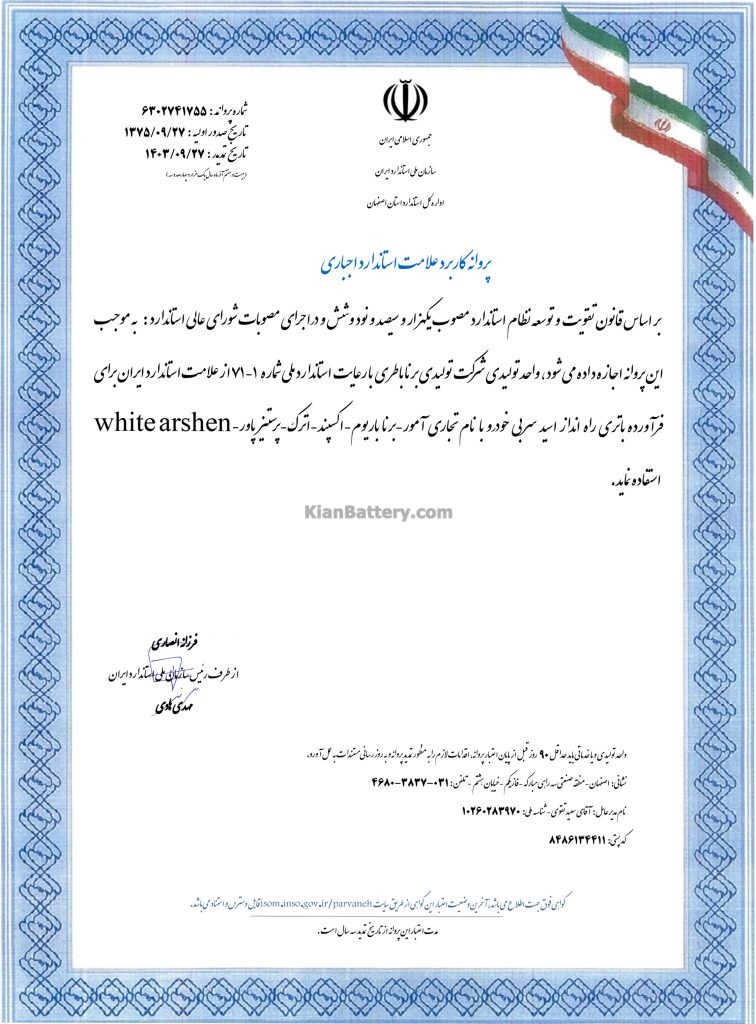 شماره پروانه : ۶۳۰۲۷۴۱۷۵۵
تاریخ صدور اولیه : ۱۳۷۵/۰۹/۲۷
تاریخ تمدید : ۱۴۰۳/۰۹/۲۷
(بیست و هفتم آذر ماه سال یک هزار و چهارصد و سه)
جمهوری اسلامی ایران
سازمان ملی استاندارد ایران
اداره کل استاندارد استان اصفهان
پروانه کاربرد علامت استاندارد اجباری
بر اساس قانون تقویت و توسعه نظام استاندارد مصوب یکهزار و سیصد و نود و شش و در اجرای مصوبات شورای عالی استاندارد : به موجب
این پروانه اجازه داده می شود، واحد تولیدی شرکت تولیدی برنا باطری با رعایت استاندارد ملی شماره ۱-۷۱ از علامت استاندارد ایران برای
فرآورده باتری راه انداز اسید سربی خودرو با نام تجاری آمور-برنا باریوم-اکسپند-اترک-پرستیژ پاور-white arshen
استفاده نماید.
KianBattery.com
فرزانه انصاری
از طرف رئیس سازمان ملی استاندارد ایران
مهدی هادی
واحد تولیدی و یا خدماتی باید حداقل ۹۰ روز قبل از پایان اعتبار پروانه، اقدامات لازم را به منظور تمدید پروانه و به روز رسانی مستندات به عمل آورد.
نشانی: اصفهان - منطقه صنعتی سه راهی مبارکه - فاز یکم - خیابان هشتم - تلفن: ۰۳۱-۳۸۳۷-۴۶۸۰
نام مدیر عامل: آقای سعید تقوی - شناسه ملی: ۱۰۲۶۰۲۸۳۹۷۰
کد پستی: ۸۴۸۶۱۳۴۴۱۱
گواهی فوق جهت اطلاع می باشد، آخرین وضعیت اعتبار این گواهی از طریق سایت isom.inso.gov.ir/parvaneh قابل دسترس و استناد می باشد.
مدت اعتبار این پروانه از تاریخ تمدید سه سال است.